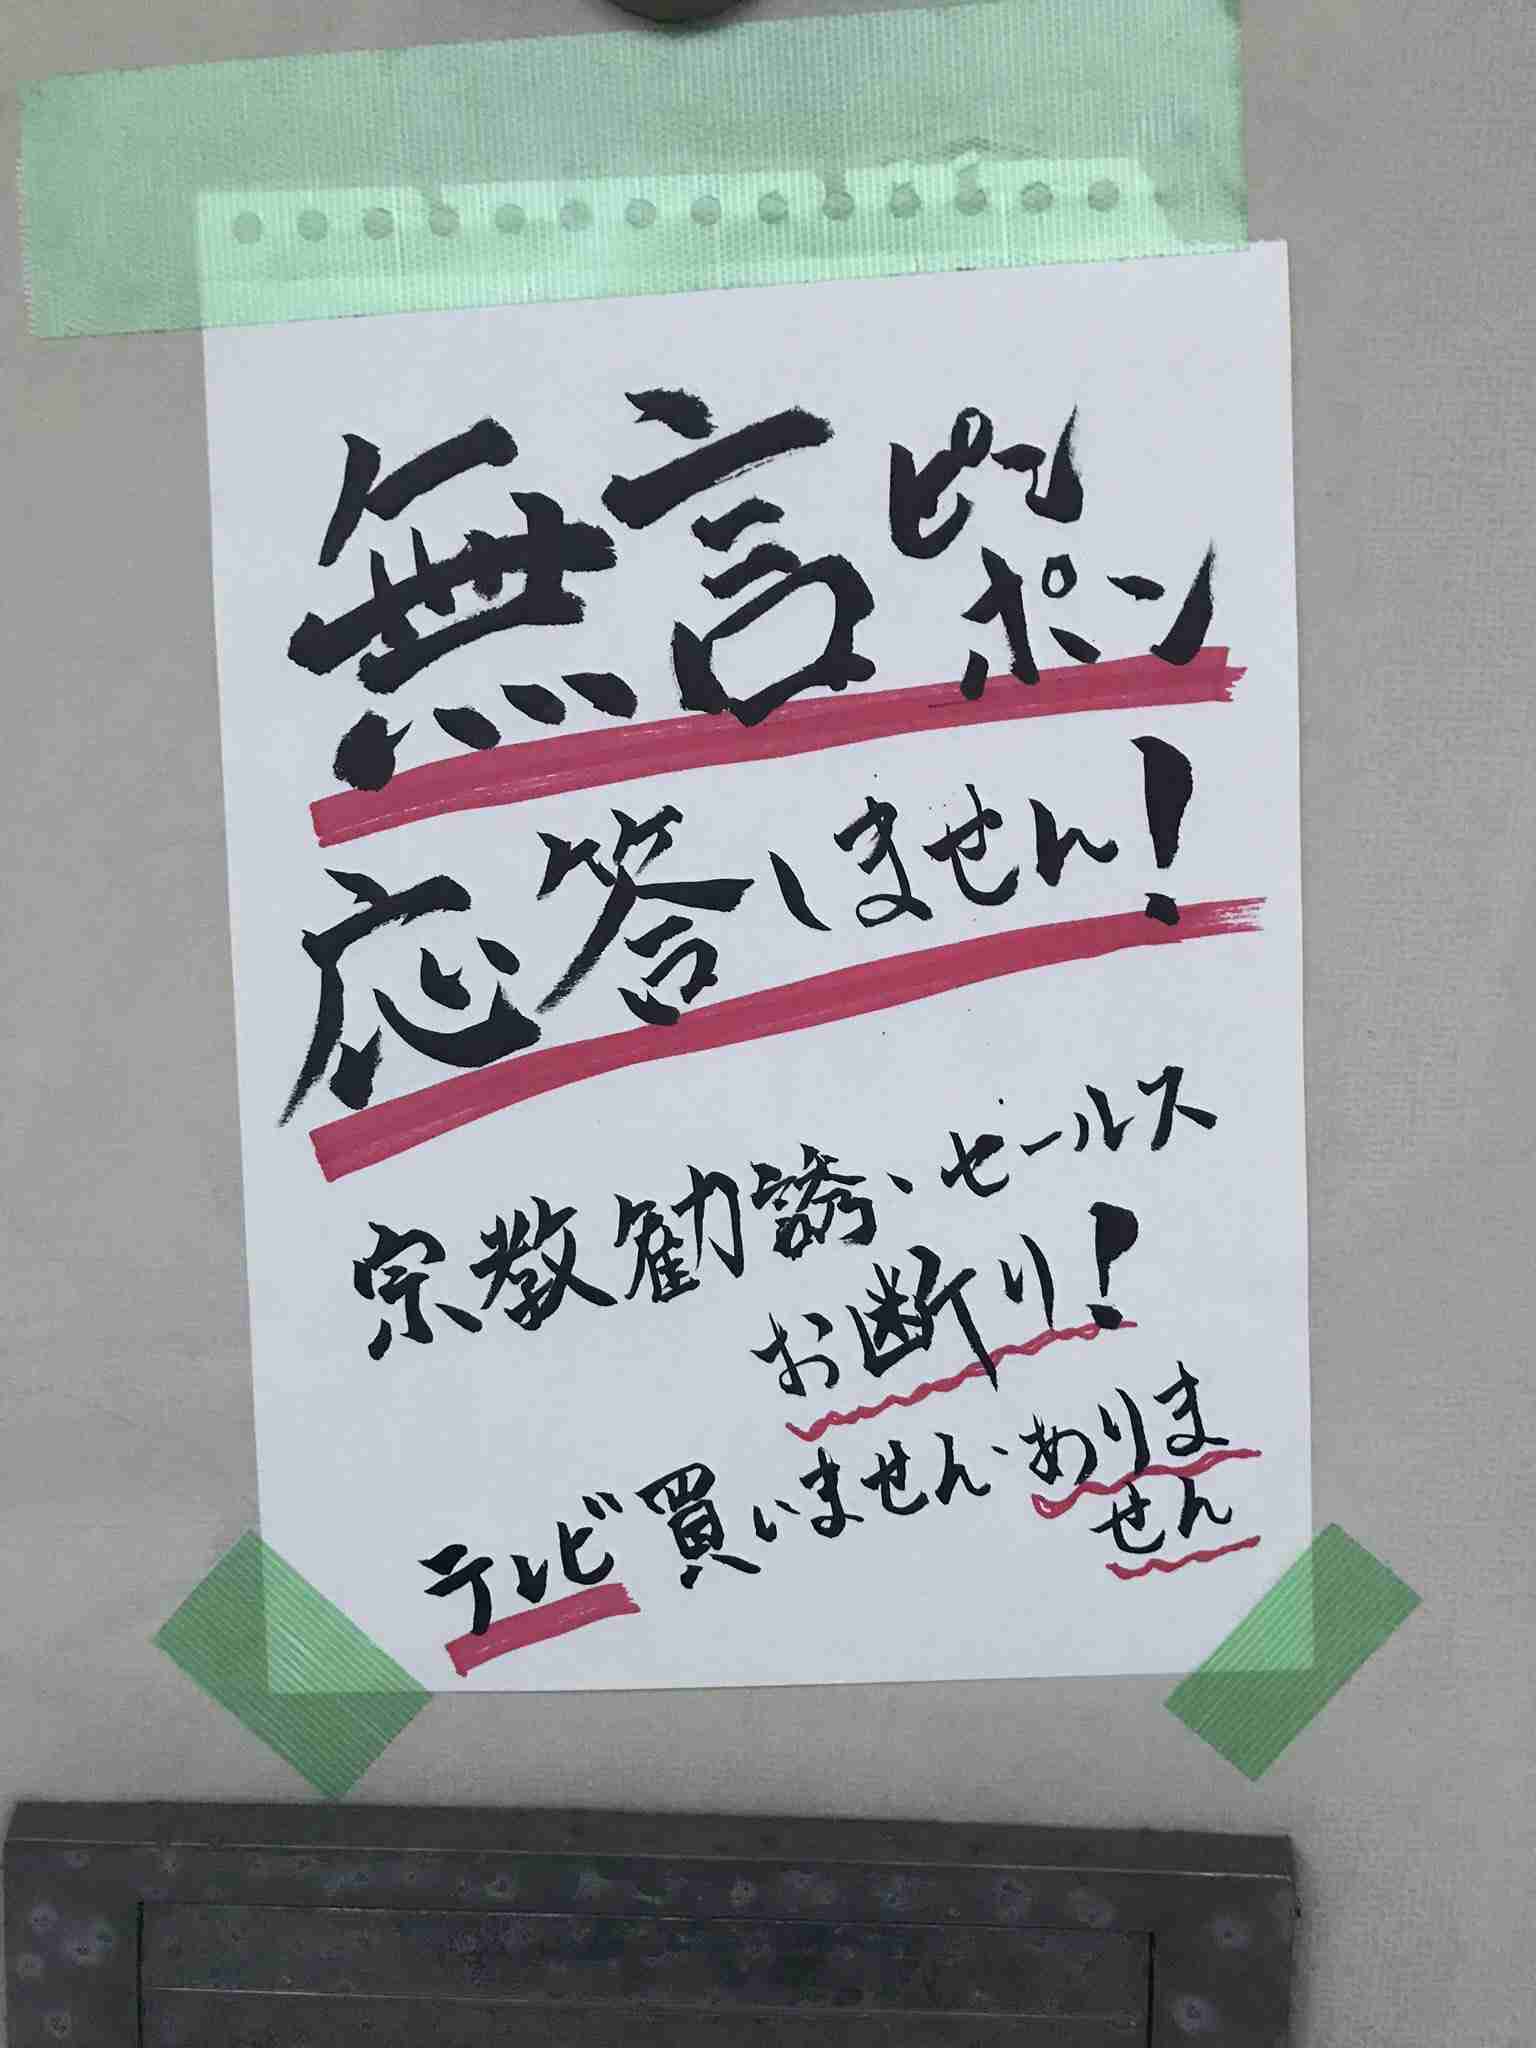 無言ピンポン
応答しません!
宗教勧誘、セールス
お断り!
テレビ買いません、ありま
せん